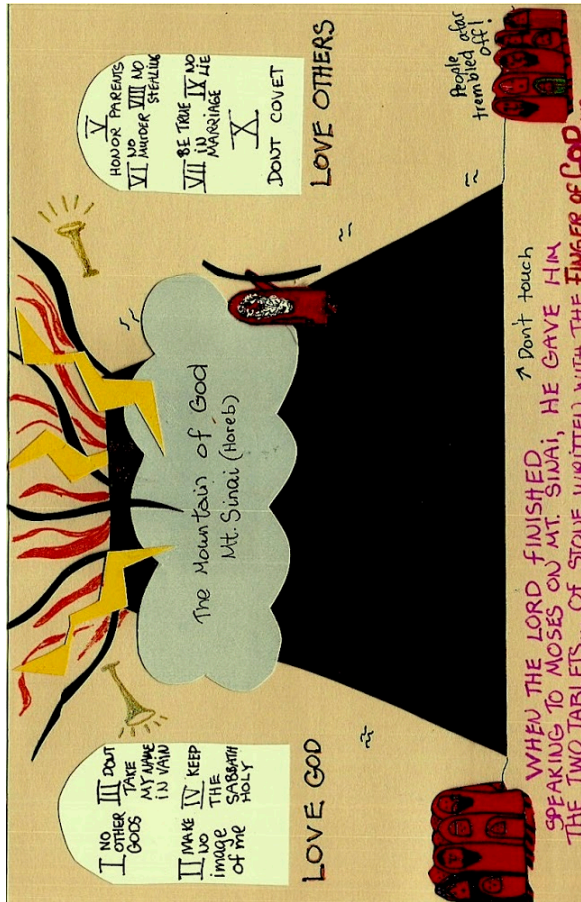 I NO OTHER GODS
II MAKE NO image of me
III DONT TAKE MY NAME IN VAIN
IV KEEP THE SABBATH HOLY
LOVE GOD
The Mountain of God
Mt. Sinai (Horeb)
V HONOR PARENTS
VI NO MURDER
VII BE TRUE IN MARRIAGE
VIII NO STEALING
IX NO LIE
X DONT COVET
LOVE OTHERS
People afar
trembled
off!
Don't touch
WHEN THE LORD FINISHED
SPEAKING TO MOSES ON MT. SINAI, HE GAVE HIM
THE TWO TABLETS OF STONE WRITTEN WITH THE FINGER OF GOD